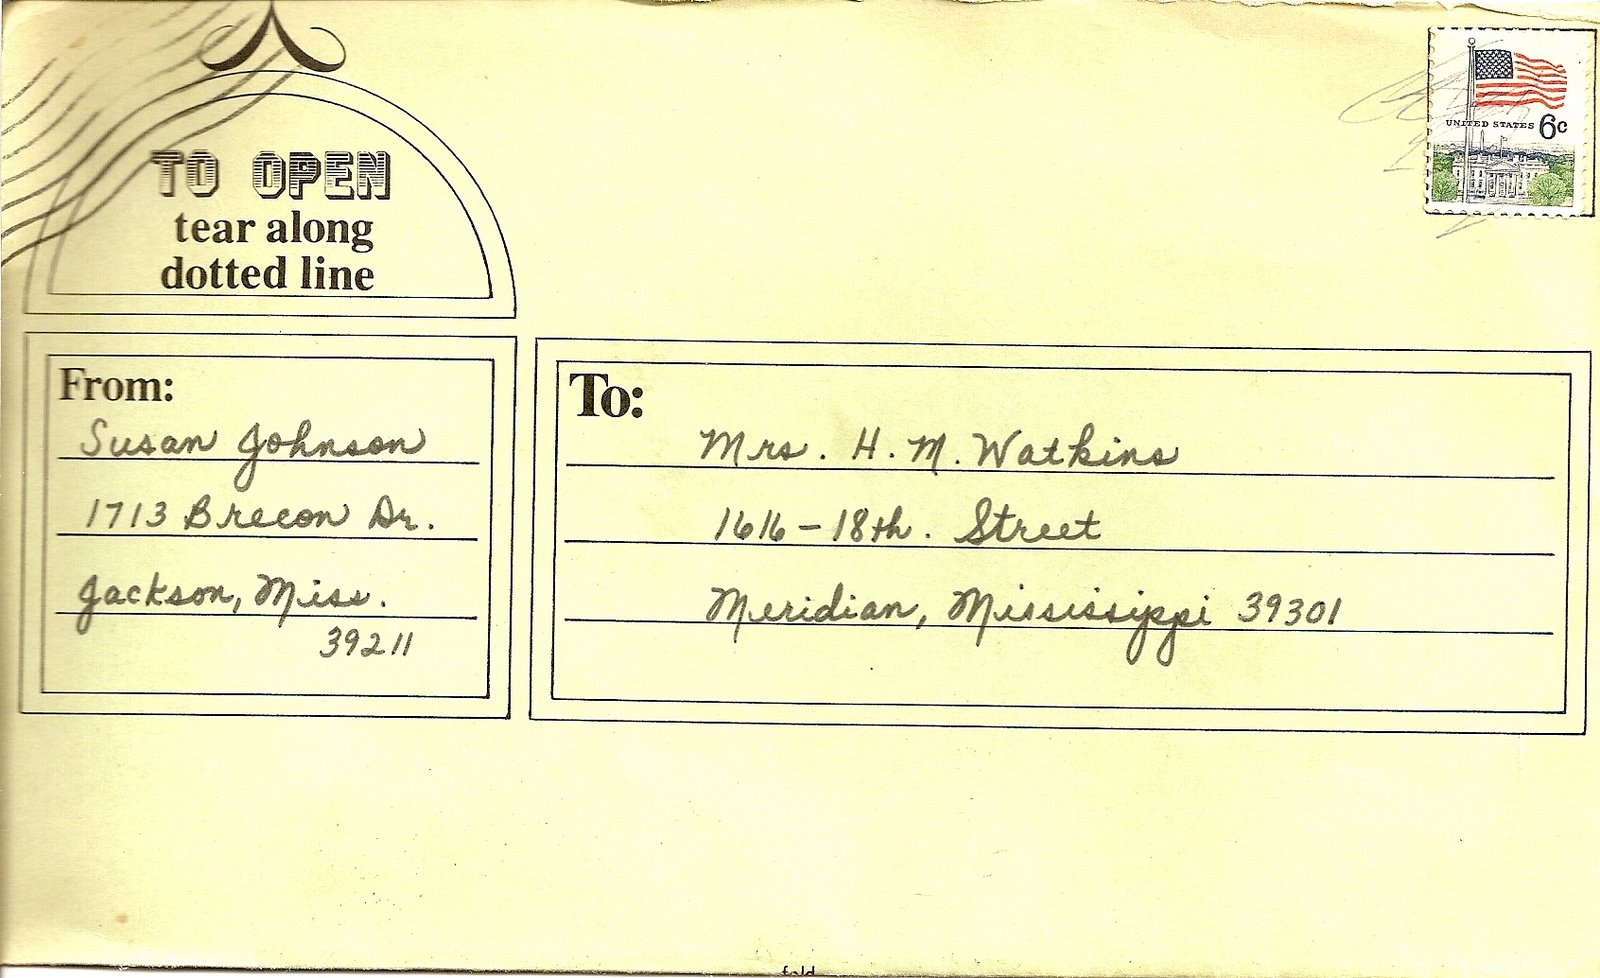 TO OPEN
tear along
dotted line
UNITED STATES 6c
From:
Susan Johnson
1713 Brecon Dr.
Jackson, Miss.
39211
To:
Mrs. H. M. Watkins
1616 - 18th. Street
Meridian, Mississippi 39301
fold